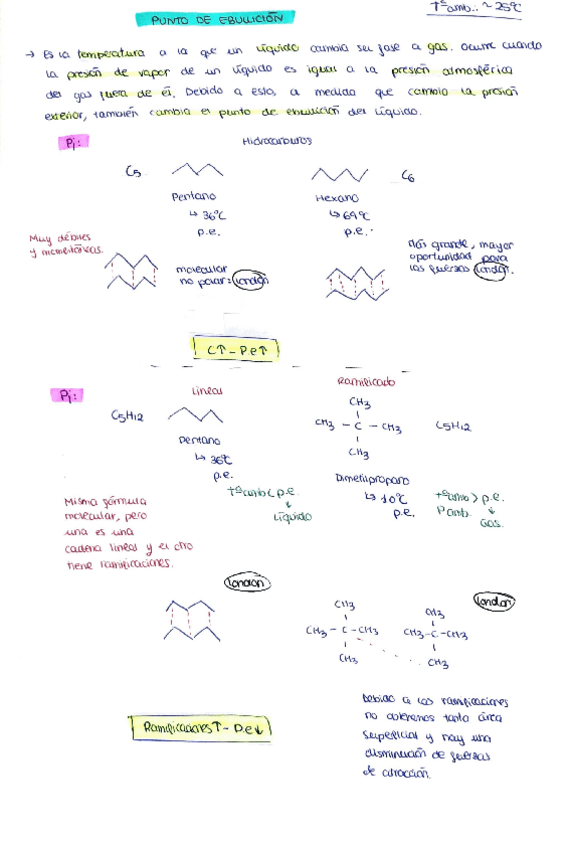 PUNTO DE EBULLICIÓN
Tª amb.: ~ 25ºC
→ Es la temperatura a la que un líquido cambia su fase a gas. Ocurre cuando
la presión de vapor de un líquido es igual a la presión atmosférica
del gas fuera de él. Debido a esto, a medida que cambia la presión
exterior, también cambia el punto de ebullición del líquido.
Pj:
Hidrocarburos
C5
C6
Pentano
↳ 36ºC
p.e.
Hexano
↳ 69ºC
p.e.
Muy débiles
y momentáneas.
molecular
no polar: London
Más grande, mayor
oportunidad para
las fuerzas London.
C↑ - P.e↑
Pj:
Lineal
Ramificado
C5H12
Pentano
↳ 36ºC
p.e.
Tª amb < p.e.
↓
Líquido
CH3
CH3 - C - CH3
CH3
C5H12
Dimetilpropano
↳ 10ºC
p.e.
Tª amb > p.e.
P amb. ↓
Gas.
Misma fórmula
molecular, pero
una es una
cadena lineal y el otro
tiene ramificaciones.
London
London
CH3
CH3 - C - CH3
CH3
CH3
CH3 - C - CH3
CH3
Ramificaciones↑ - P.e↓
Debido a las ramificaciones
no obtenemos tanto área
superficial y hay una
disminución de fuerzas
de atracción.